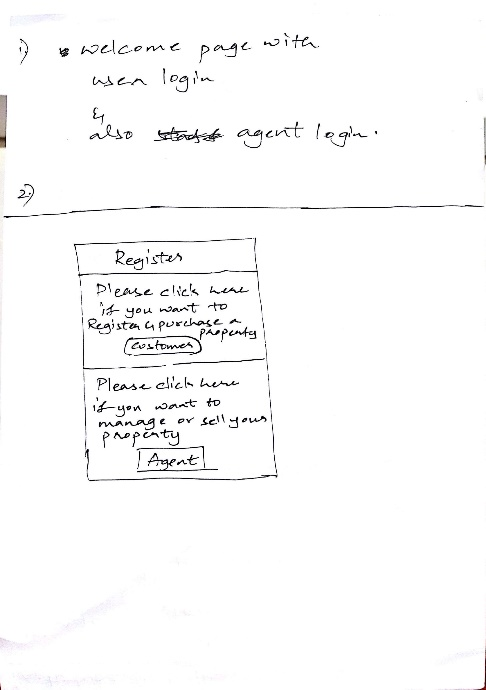 1) welcome page with
user login
&
also agent login.
2)
Register
Please click here
if you want to
Register & purchase a
property
Customer
Please click here
if you want to
manage or sell your
property
Agent